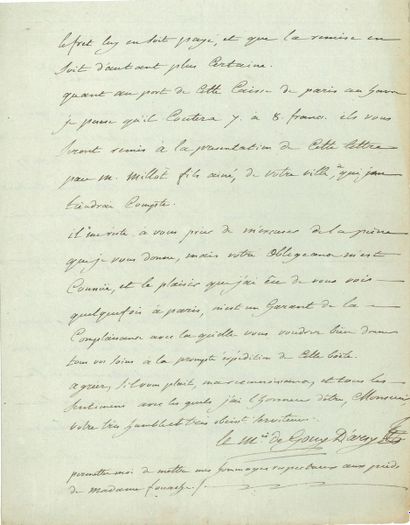 le fret luy en soit payé, et que la remise en
soit d'autant plus certaine.
quant au port de cette Caisse de paris au havre
je pense qu'il Coutera 7. a 8. francs. ils vous
seront remis a la presentation de Cette lettre
par m. Millot fils ainé, de votre ville, a qui j'en
tiendrai Compte.
il me reste a vous prier de m'excuser de la peine
que je vous donne, mais votre Obligeance m'est
Connüe, et le plaisir que j'ai eu de vous voir
quelquefois a paris, m'est un Garant de la
Complaisance avec la quelle vous voudrez bien donner
tous vos soins a la prompte expédition de Cette boite.
agreez, s'il vous plait, ma reconnoissance, et tous les
sentimens avec les quels j'ai l'honneur d'être, Monsieur
votre très humble et très obeist serviteur.
le Mis de Gouy D'arsy
permettez moi de mettre mes hommages respectueux aux pieds
de Madame